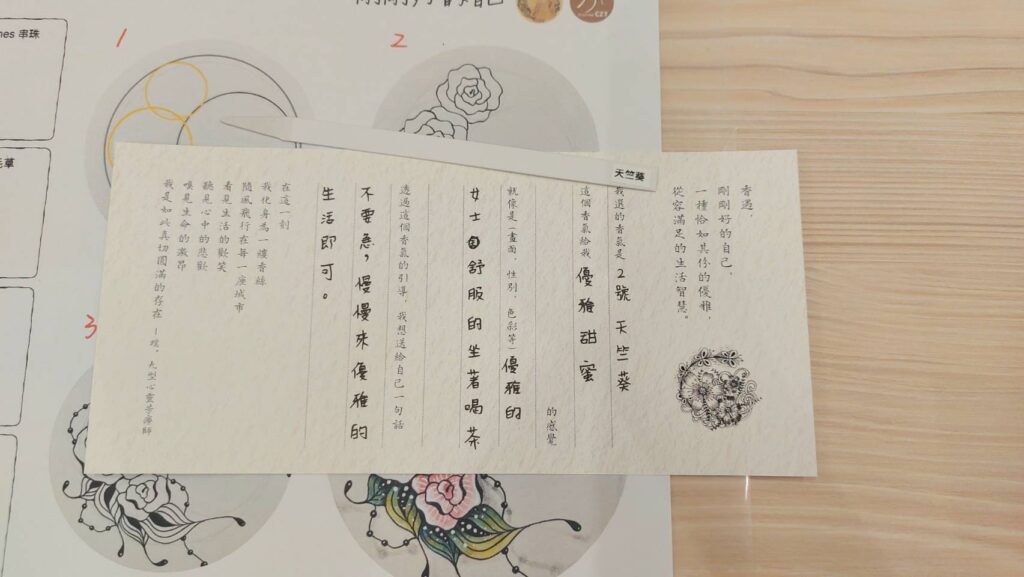 nes 串珠
1
2
CZT
3
天竺葵
香遇，
剛剛好的自己。
一種恰如其份的優雅，
從容滿足的生活智慧。
我選的香氣是 2號 天竺葵
這個香氣給我 優雅 甜蜜
的感覺
就像是(畫面、性別、色彩等) 優雅的
女士舒服的坐著喝茶
透過這個香氣的引導，我想送給自己一句話
不要急，慢慢來優雅的
生活即可。
在這一刻
我化身為一縷香絲
隨風飛行在每一座城市
看見生活的歡笑
聽見心中的悲歡
嗅見生命的激昂
我是如此真切圓滿的存在